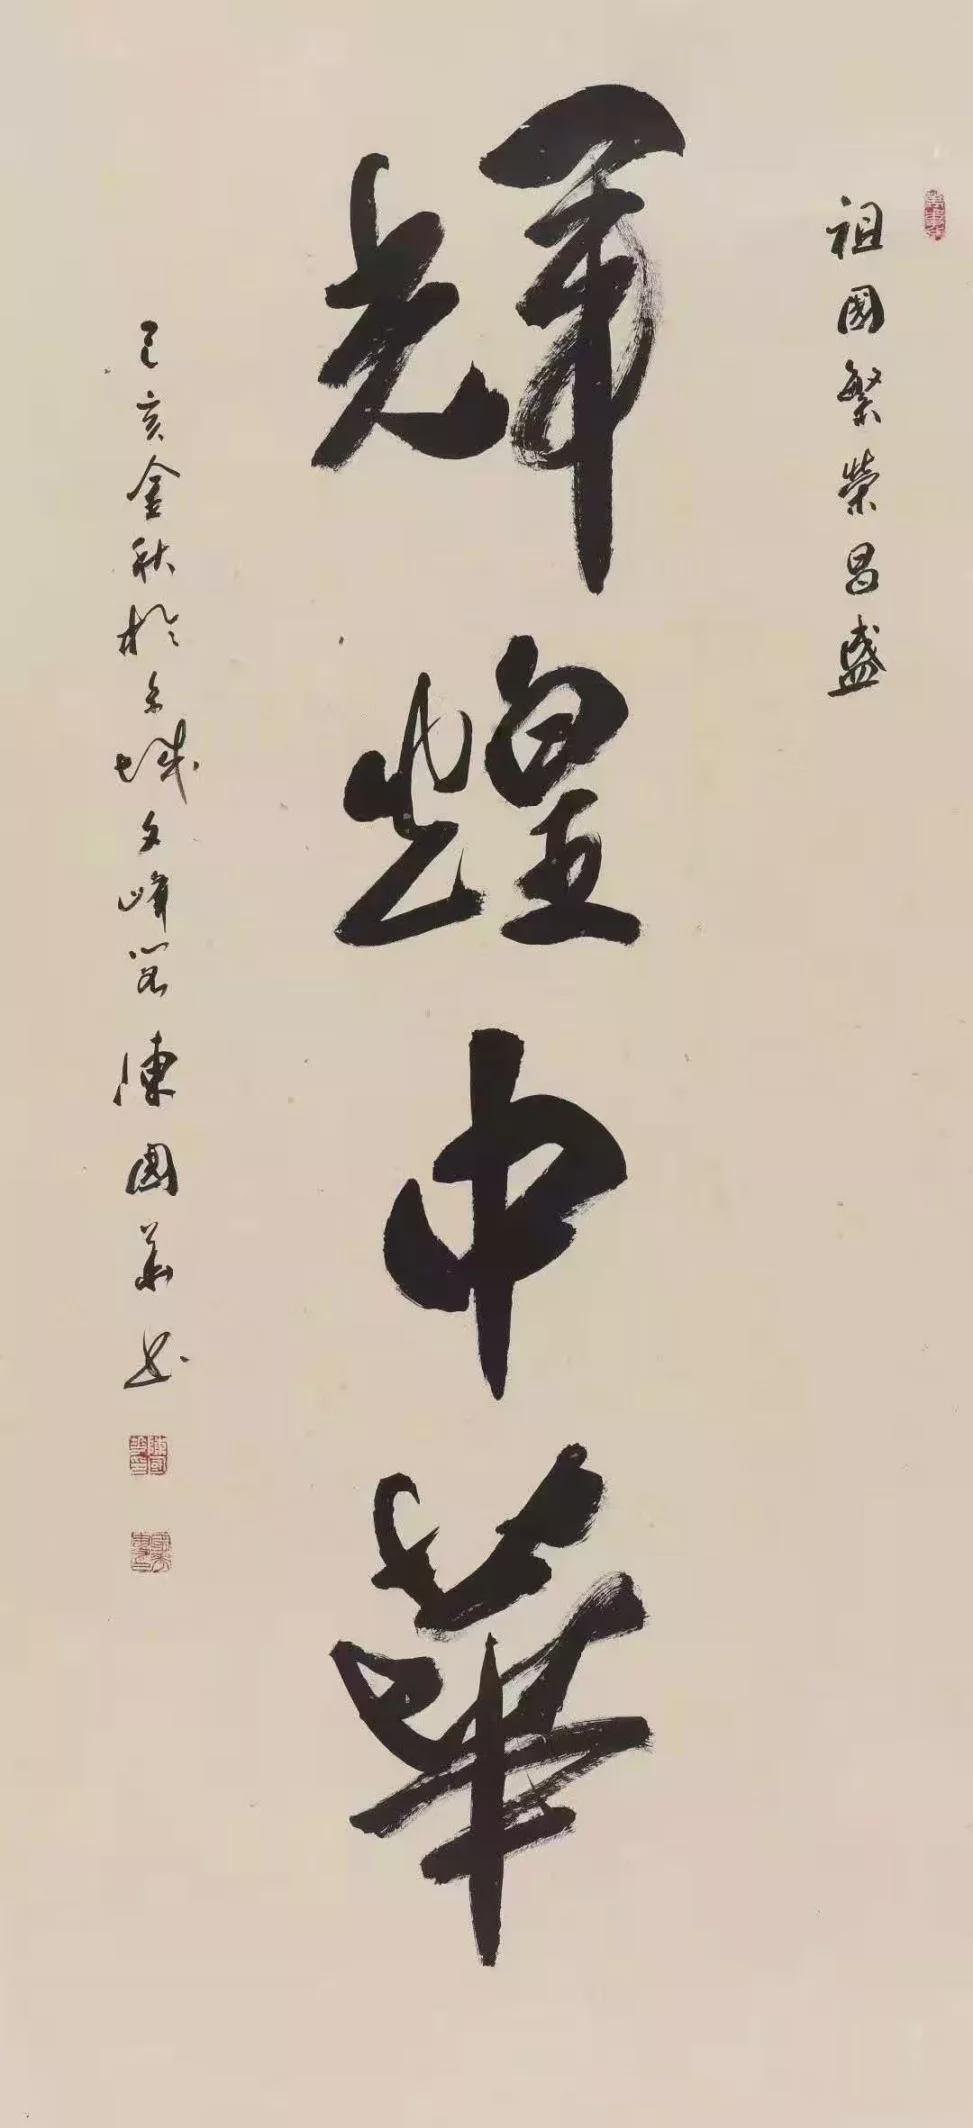 祖國繁榮昌盛
輝煌中華
己亥金秋於京城文峰閣陳國華書